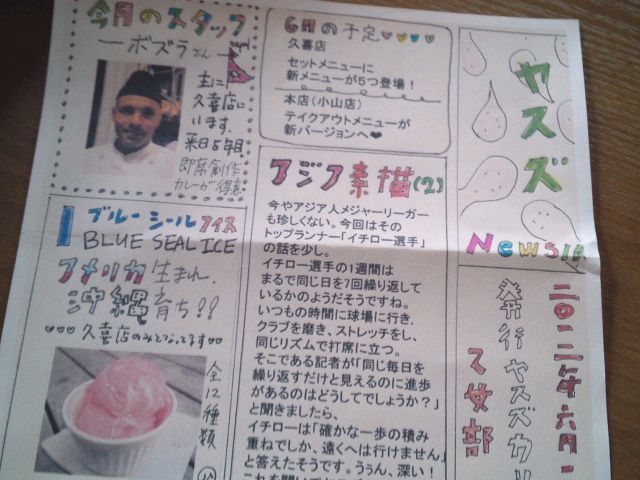 ヤスズ
News!!
二〇一二年六月
発行ヤスズカリ
乙女部
6月の予定
久喜店
セットメニューに
新メニューが5つ登場！
本店(小山店)
テイクアウトメニューが
新バージョンへ♥
今月のスタッフ
ーボズラさんー
主に
久喜店に
います。
来日5年目
即席創作
カレーが得意
アジア素描(2)
今やアジア人メジャーリーガー
も珍しくない。今回はその
トップランナー「イチロー選手」
の話を少し。
イチロー選手の1週間は
まるで同じ日を7回繰り返して
いるかのようだそうですね。
いつもの時間に球場に行き、
クラブを磨き、ストレッチをし、
同じリズムで打席に立つ。
そこである記者が「同じ毎日を
繰り返すだけと見えるのに進歩
があるのはどうしてでしょうか？」
と聞きましたら、
イチローは「確かな一歩の積み
重ねでしか、遠くへは行けません」
と答えたそうです。ううん、深い！
ブルーシールアイス
BLUE SEAL ICE
アメリカ生まれ、
沖縄育ち!!
♡♡♡久喜店のみとなってます♡♡
全12種類